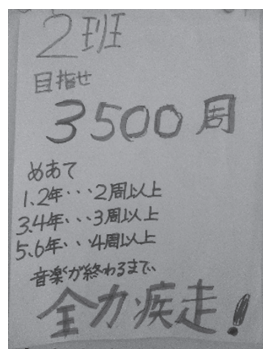 2班
目指せ
3500周
めあて
1、2年・・・2周以上
3、4年・・・3周以上
5、6年・・・4周以上
音楽が終わるまで、
全力疾走!